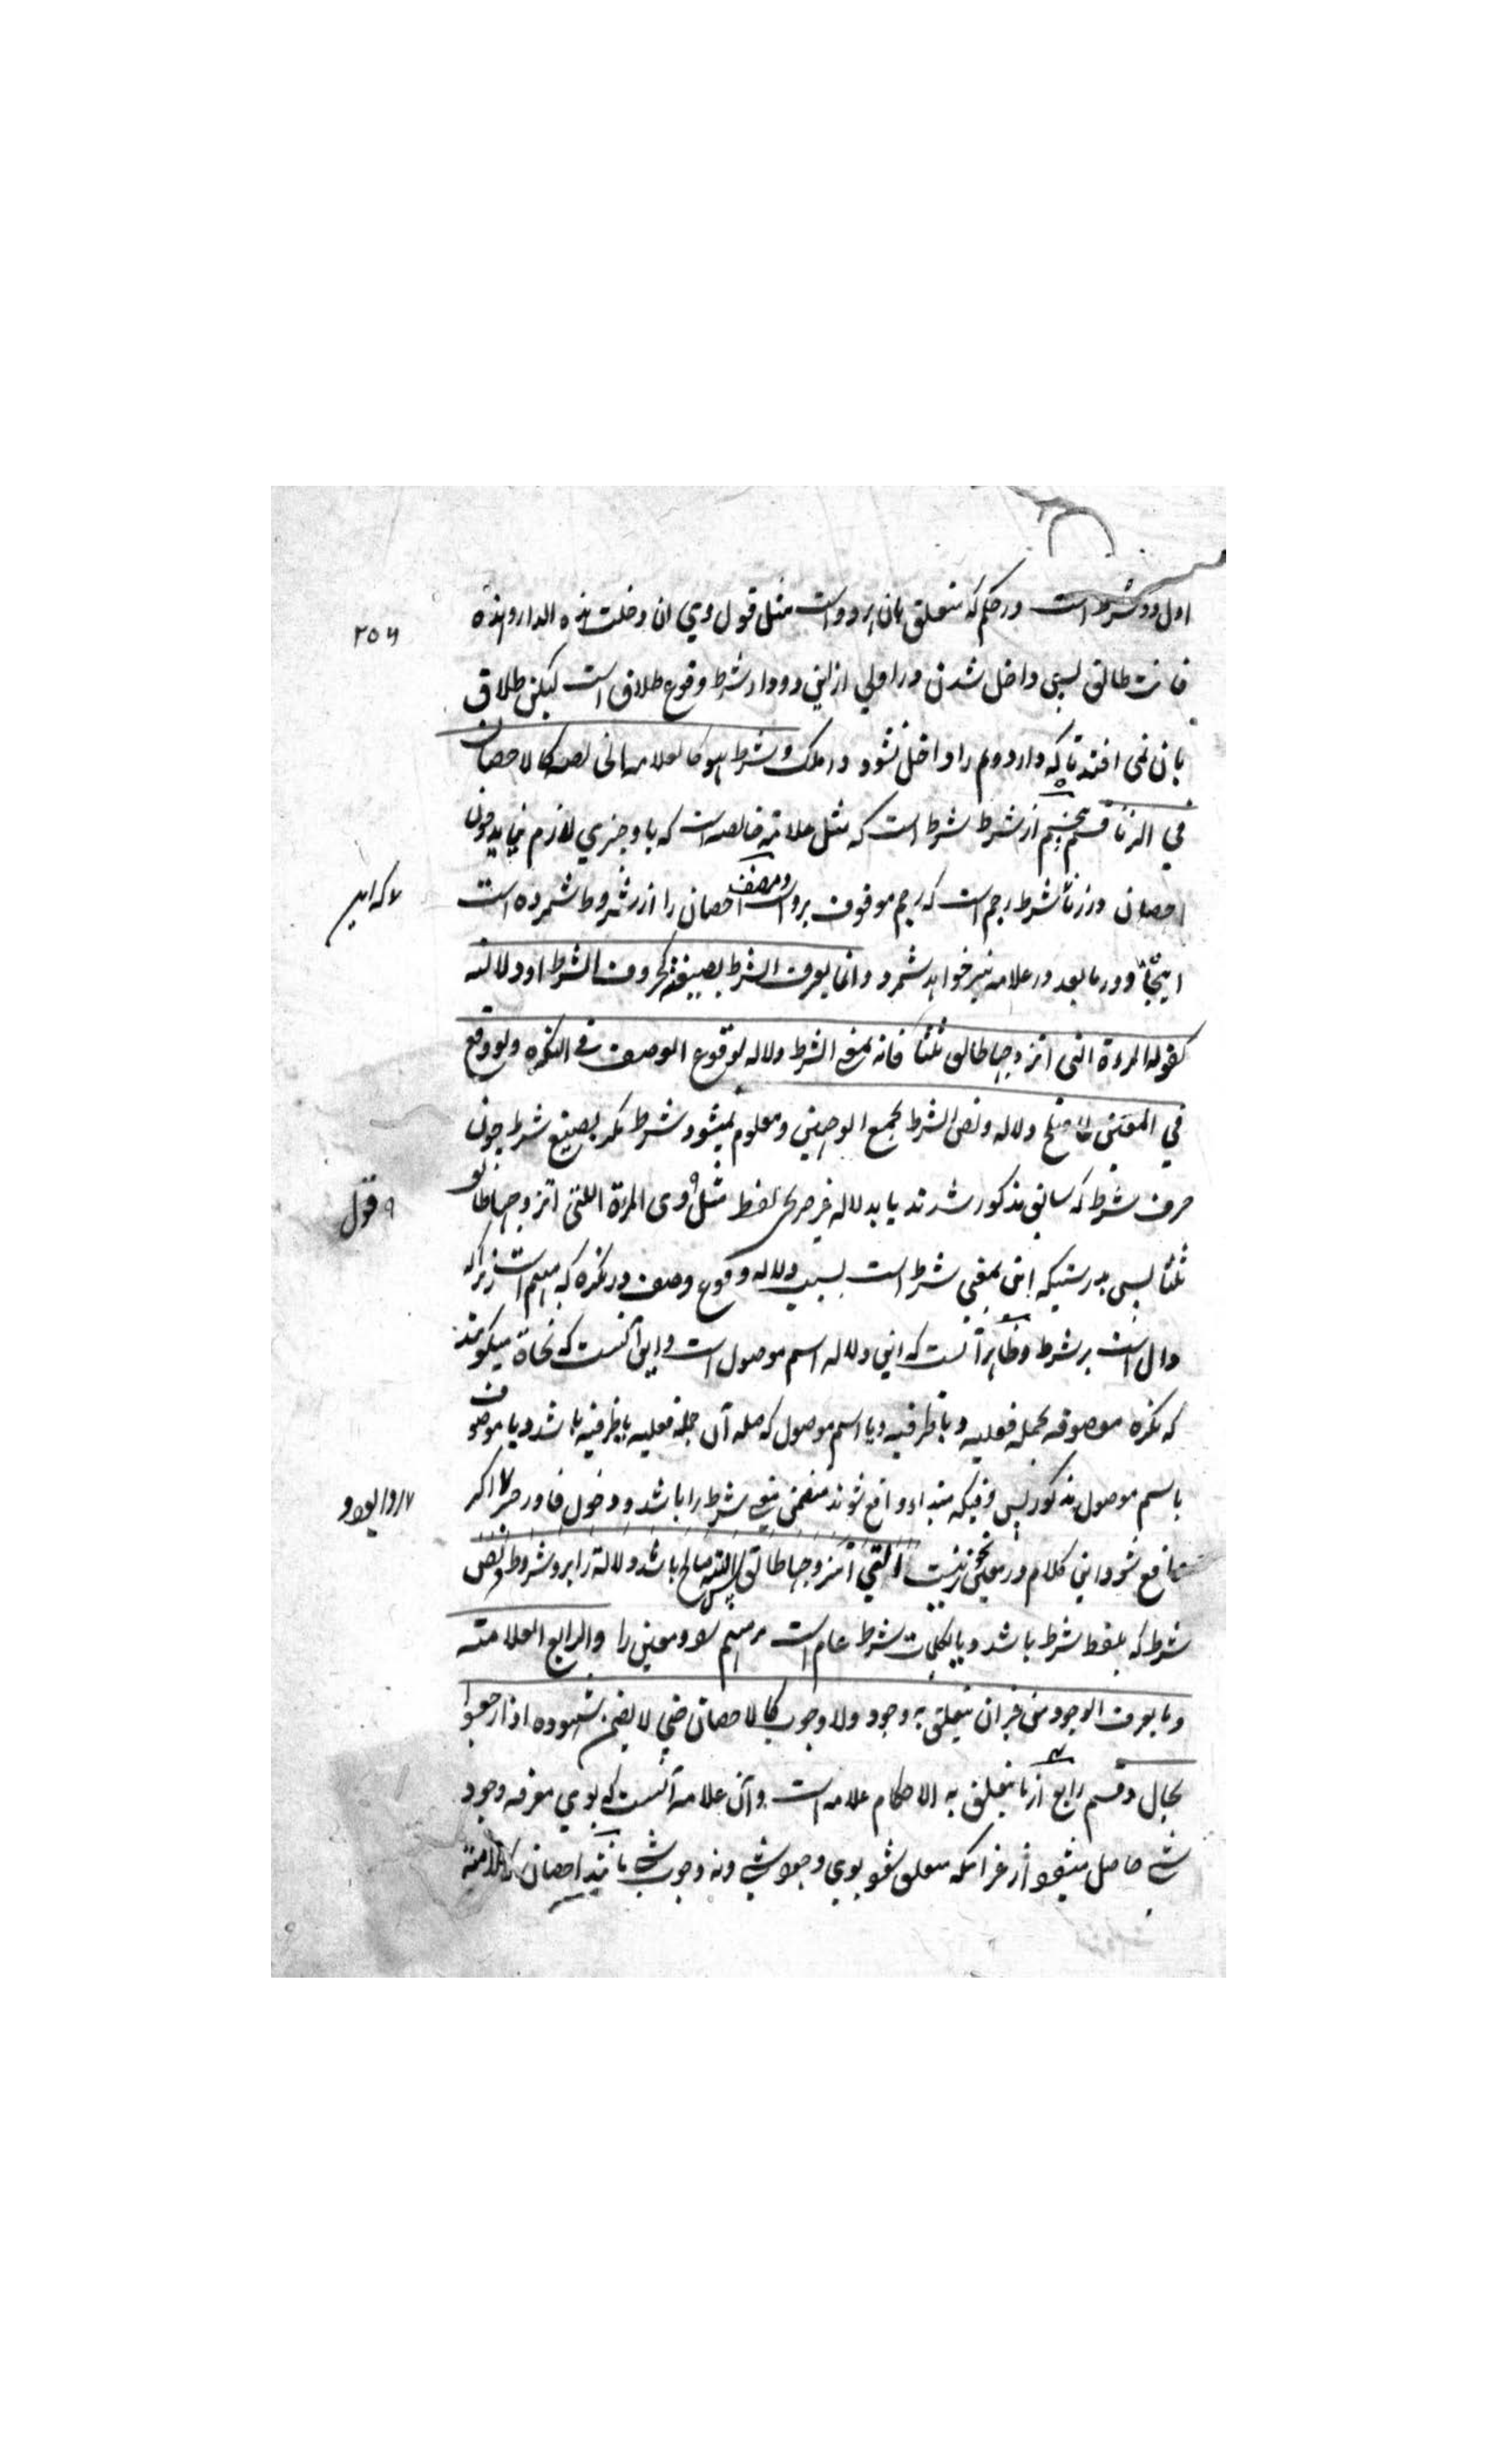 اول دو شرط است در حکم که متعلق بان هر دو است مثل قول وی ان دخلت هذه الدار و هذه
۲۵۶
فانت طالق پس داخل شدن در اولی ازین دو دار شرط وقوع طلاق است لیکن طلاق
بان نمی افتد تا که دار دوم را داخل نشود در ملک و شرط هو کالعلامه الخالصه کالاحصان
فی الزنا قسم پنجم از شرط شرط است که مثل علامة خالصه است که با و چیزی لازم نیاید چون
احصان در زنا شرط رجم است که رجم موقوف بروست و مصنف احصان را از شروط شمرده است
اینجا و در ما بعد در علامه نیز خواهد شمرد و انما یعرف الشرط بصیغته کحروف الشرط او دلالته
کقوله المرءة التی اتزوجها طالق ثلثا فانه بمعنی الشرط دلاله لوقوع الوصف فی النکره ولو وقع
فی المعین لما صلح دلاله و نص الشرط یجمع الوجهین و معلوم نمیشود شرط مگر بصیغه شرط چون
حرف شرط که سابق مذکور شدند یا بدلاله غیر صریح لفظ مثل وی المرءة اللتی اتزوجها طالق
قول
ثلثا پس بدرستیکه این بمعنی شرط است بسبب دلاله وقوع وصف در نکره که مبهم است زیراکه
دال است بر شرط و ظاهر آنست که این دلاله اسم موصول است و این آنست که نحاة میکویند
که نکره موصوفه بجمله فعلیه و یا ظرفیه و یا اسم موصول که صله آن جمله فعلیه یا ظرفیه باشد و یا موصوف
باسم موصول مذکور پس وقتیکه مبتداء واقع شوند متضمن معنی شرط را باشد و دخول فا در خبر اکر
واقع شود این کلام در معین زینب التی اتزوجها طالق پس البته صالح باشد دلالة را بر و شروط و نص
شرط که بلفظ شرط باشد و یا بکلمات شرط عام است مبهم و معین را والرابع العلامته
و ما یعرف الوجود من غیر ان یتعلق به وجود ولا وجوب کالاحصان حتی لا یضمن شهوده اذا رجعوا
بحال و قسم رابع از ما یتعلق به الاحکام علامه است و آن علامه آنست که بوی معرفه وجود
شی حاصل میشود از غیر انکه متعلق شود بوی وجود شی و نه وجوب شی مانند احصان